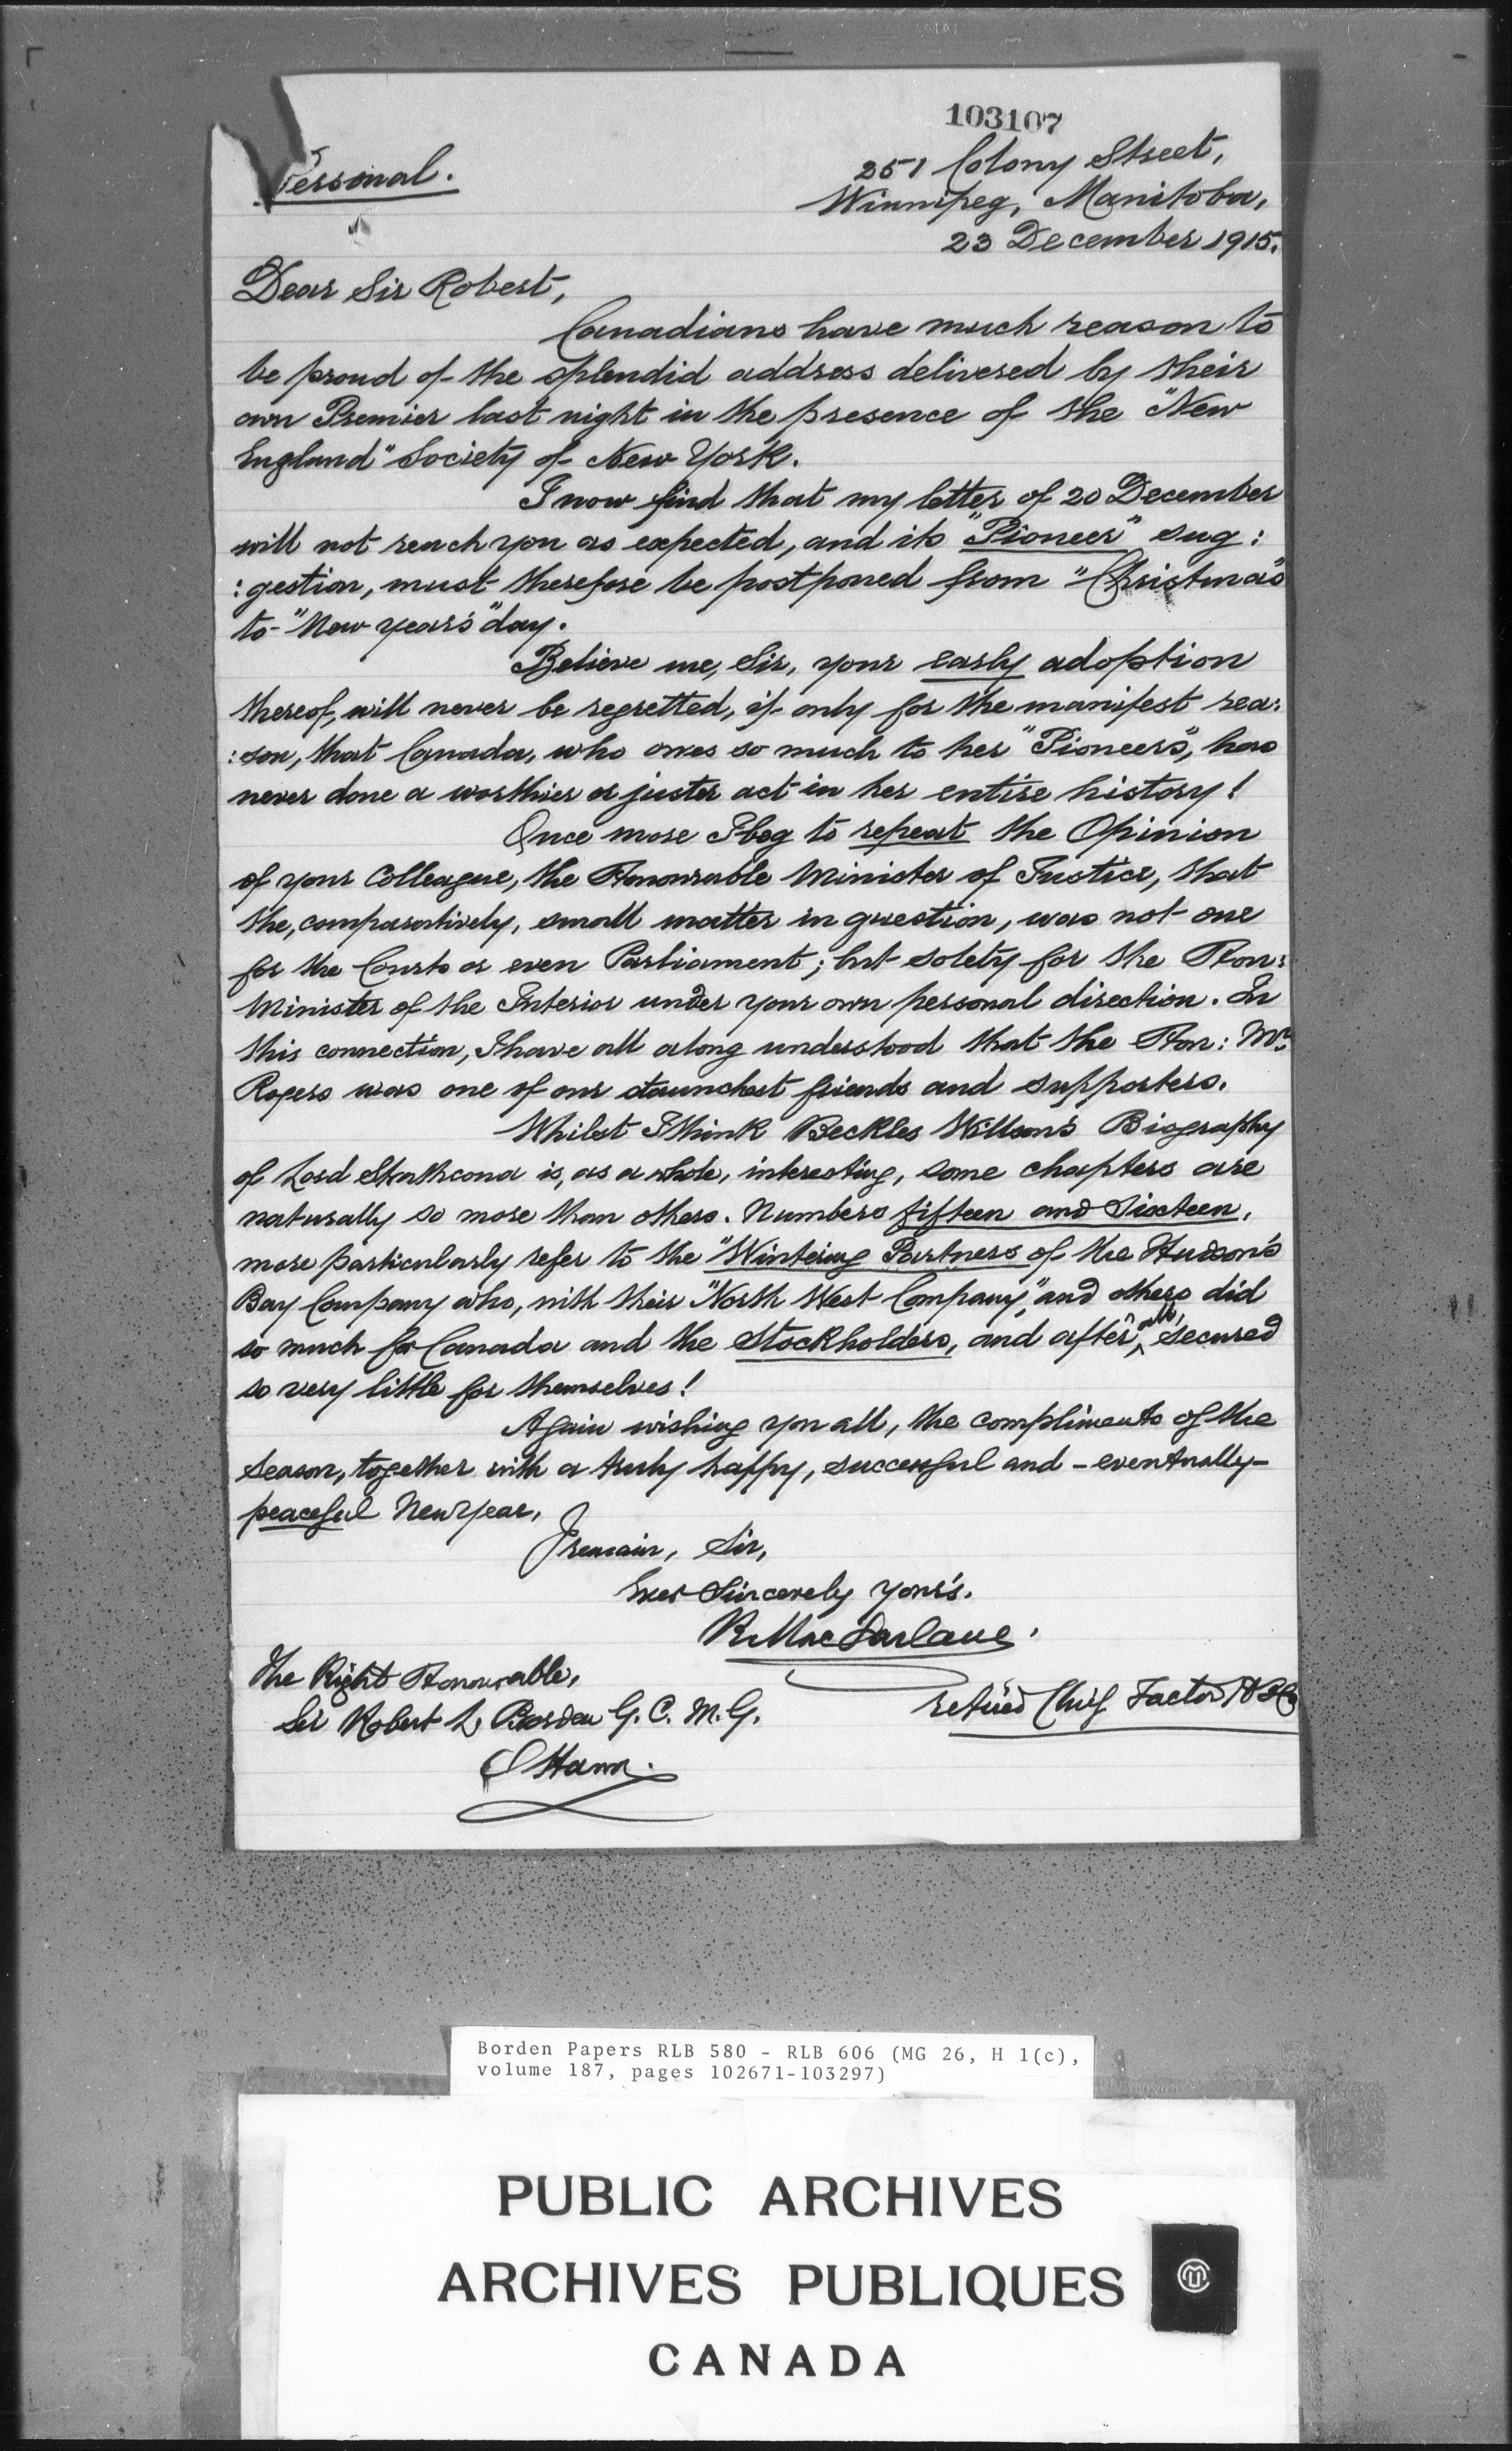 103107
Personal.
251 Colony Street,
Winnipeg, Manitoba,
23 December 1915.
Dear Sir Robert,
Canadians have much reason to
be proud of the splendid address delivered by their
own Premier last night in the presence of the "New
England" Society of New York.
I now find that my letter of 20 December
will not reach you as expected, and its "Pioneer" sug:
:gestion, must therefore be postponed from "Christmas"
to "New years" day.
Believe me, Sir, your early adoption
thereof, will never be regretted, if only for the manifest rea:
:son, that Canada, who owes so much to her "Pioneers", has
never done a worthier or juster act in her entire history!
Once more I beg to repeat the Opinion
of your Colleague, the Honourable Minister of Justice, that
the, comparatively, small matter in question, was not one
for the Courts or even Parliament; but solely for the Hon:
Minister of the Interior under your own personal direction. In
this connection, I have all along understood that the Hon: Mr.
Rogers was one of our staunchest friends and supporters.
Whilst I think Beckles Willson's Biography
of Lord Strathcona is, as a whole, interesting, some chapters are
naturally so more than others. Numbers fifteen and Sixteen,
more particularly refer to the "Wintering Partners of the Hudson's
Bay Company who, with their "North West Company," and others did
so much for Canada and the Stockholders, and after all, secured
so very little for themselves!
Again wishing you all, the compliments of the
Season, together with a truly happy, successful and - eventually -
peaceful New Year,
I remain, Sir,
Ever Sincerely Your's.
R. MacFarlane.
retired Chief Factor H B Co
The Right Honourable,
Sir Robert L Borden G. C. M. G.
Ottawa.
Borden Papers RLB 580 - RLB 606 (MG 26, H 1(c),
volume 187, pages 102671-103297)
PUBLIC ARCHIVES
ARCHIVES PUBLIQUES
CANADA